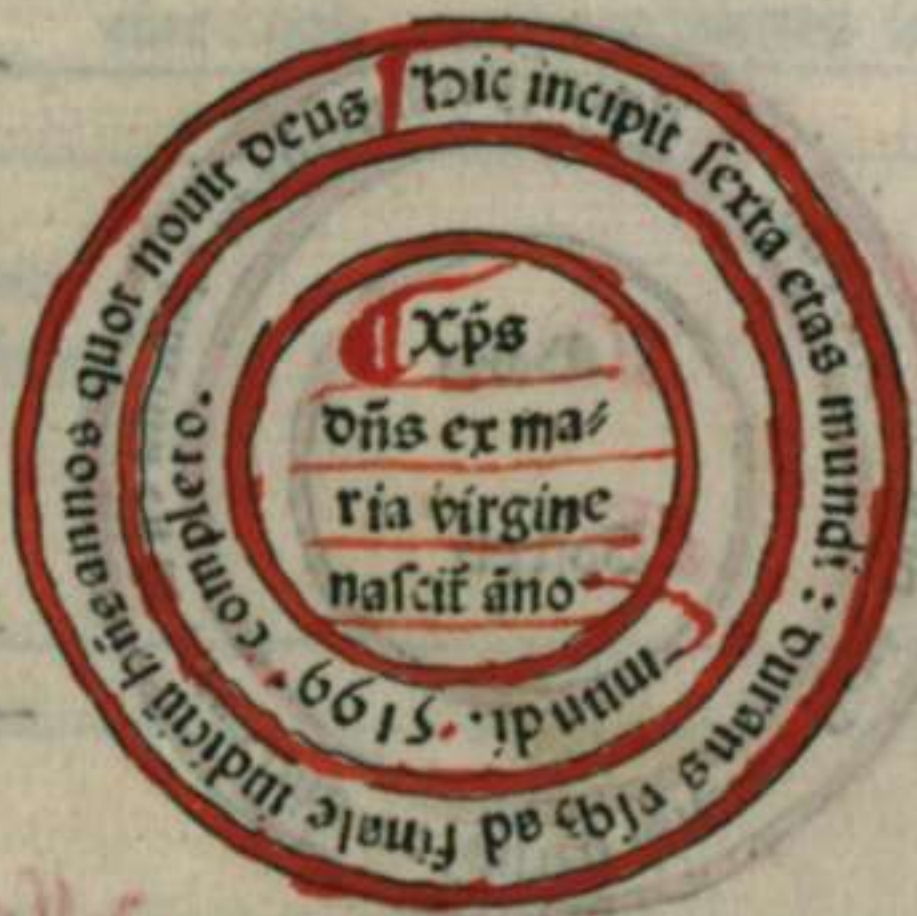 Hic incipit ſexta etas mundi : durans vſqꝫ ad finale iudiciū hn̄s annos quot nouit deus
¶ Xp̄s
dn̄s ex ma⸗
ria virgine
naſcit̄ āno
mundi. 5199. completo.